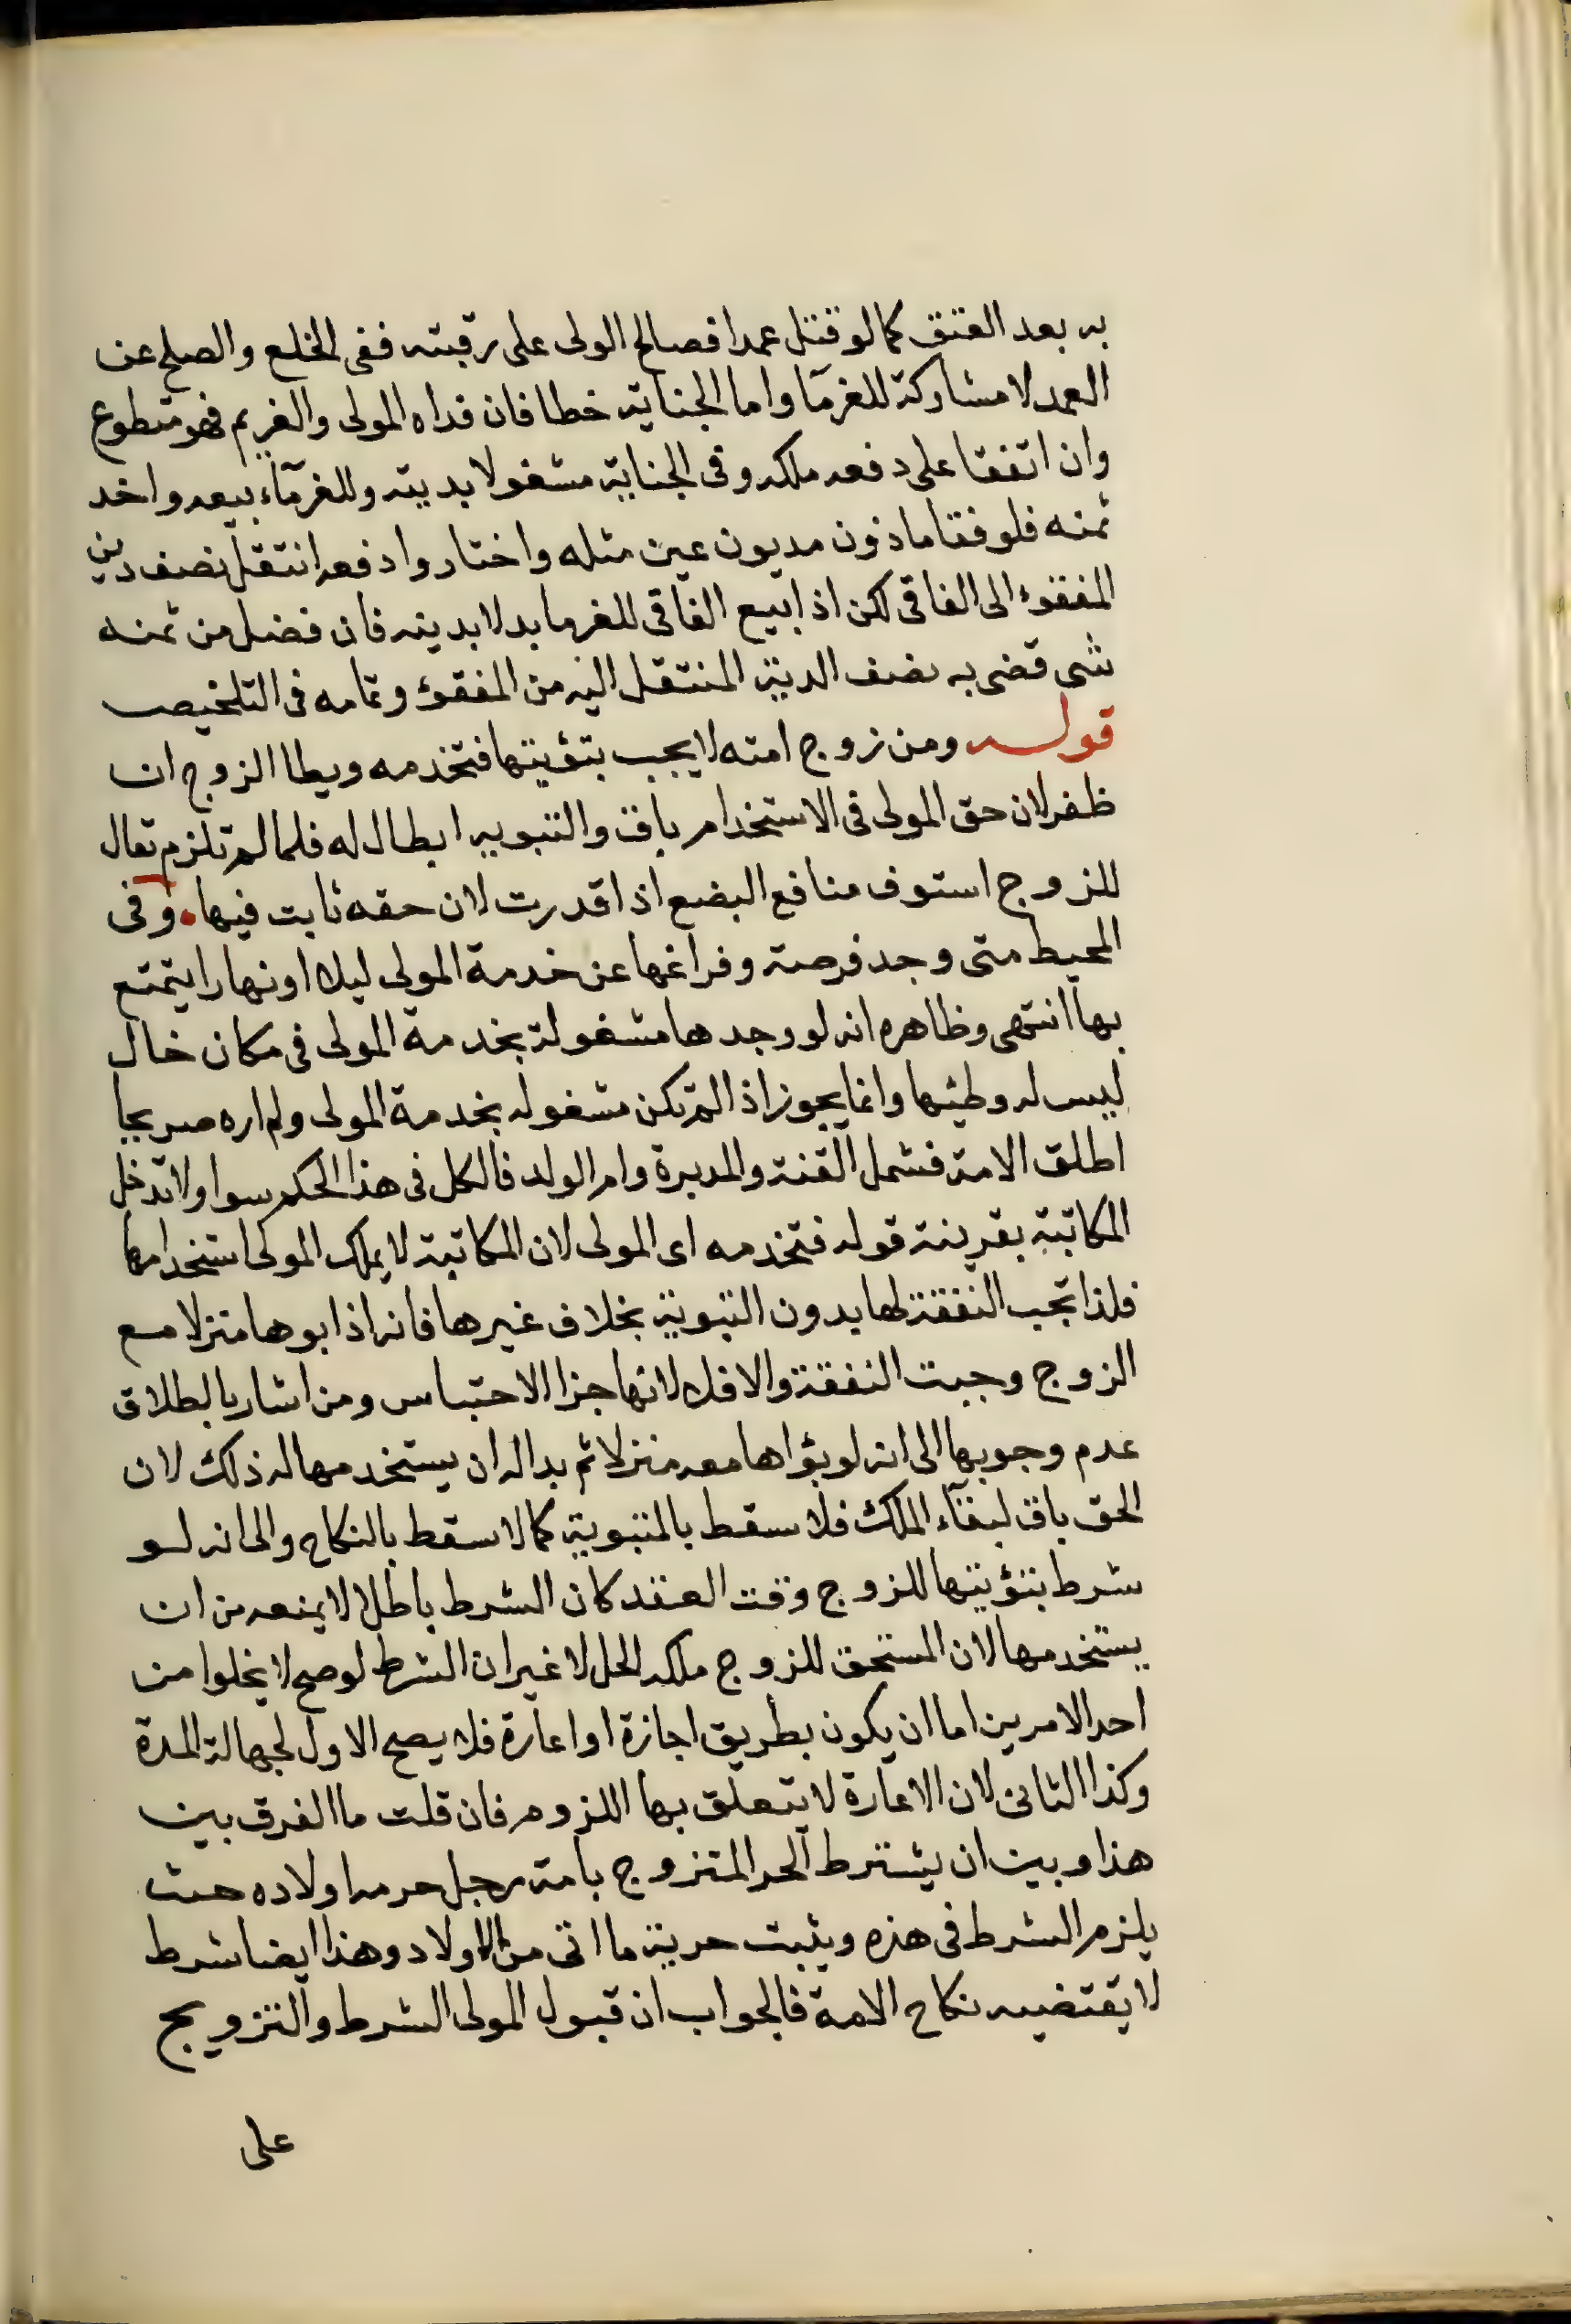 به بعد العتق كما لو قتل عمدا فصالح الولى على رقبته ففى الخلع والصلح عن
العمد لا مشاركة للغرمآ واما الجناية خطا فان فداه المولى والغريم فهو متطوع
وان اتفقا على دفعه ملكه وفى الجناية مشغولا بدينه وللغرمآء بيعه واخد
ثمنه فلو فقا ماذون مديون عين مثله واختاروا دفعه انتقل نصف دين
المفقوء الى الفاقى لكن اذا بيع الفاقى للغرما بدلا بدينه فان فضل من ثمنه
شى قضى به نصف الدين المنتقل اليه من المفقوء وتمامه فى التلخيص
قوله ومن زوج امته لا يجب بتؤيتها فتخدمه ويطا الزوج ان
ظفر لان حق المولى فى الاستخدام باق والتبويه ابطال له فلما لم تلزم تقال
للزوج استوف منافع البضع اذا قدرت لان حقه ثابت فيها. وفى
المحيط متى وجد فرصة وفراغها عن خدمة المولى ليلا او نهارا يتمتع
بها انتهى وظاهره انه لو وجدها مشغولة بخدمة المولى فى مكان خال
ليس له وطئها وانما يجوز اذا لم تكن مشغوله بخدمة المولى ولم اره صريحا
اطلق الامة فشمل القنة والمدبرة وام الولد فالكل فى هذا الحكم سوا ولا تدخل
المكاتبة بقرينة قوله فتخدمه اى المولى لان المكاتبة لا يملك المولى استخدامها
فلذا تجب النفقة لها بدون التبوية بخلاف غيرها فانه اذا بوها منزلا مع
الزوج وجبت النفقة والا فلا لانها جزا الاحتباس ومن اشار باطلاق
عدم وجوبها الى انه لو بؤاها معه منزلا ثم بدا له ان يستخدمها له ذلك لان
الحق باق لبقآء الملك فلا سقط بالمتبوية كما لا سقط بالنكاح والى انه لو
شرط بتؤيتها للزوج وقت العقد كان الشرط باطلا لا يمنعه من ان
يستخدمها لان المستحق للزوج ملك الحل لا غير ان الشرط لو صح لا يخلوا من
احد الامرين اما ان يكون بطريق اجازة او اعارة فلا يصح الاول لجهالة المدة
وكذا الثانى لان الاعارة لا يتعلق بها اللزوم فان قلت ما الفرق بين
هذا وبين ان يشترط الحر المتزوج بامة رجل حرمه اولاده حيث
يلزم الشرط فى هذه ويثبت حرية ما اتى من الاولاد وهذا ايضا شرط
لا يقتضيه نكاح الامة فالجواب ان قبول المولى الشرط والتزويج
على